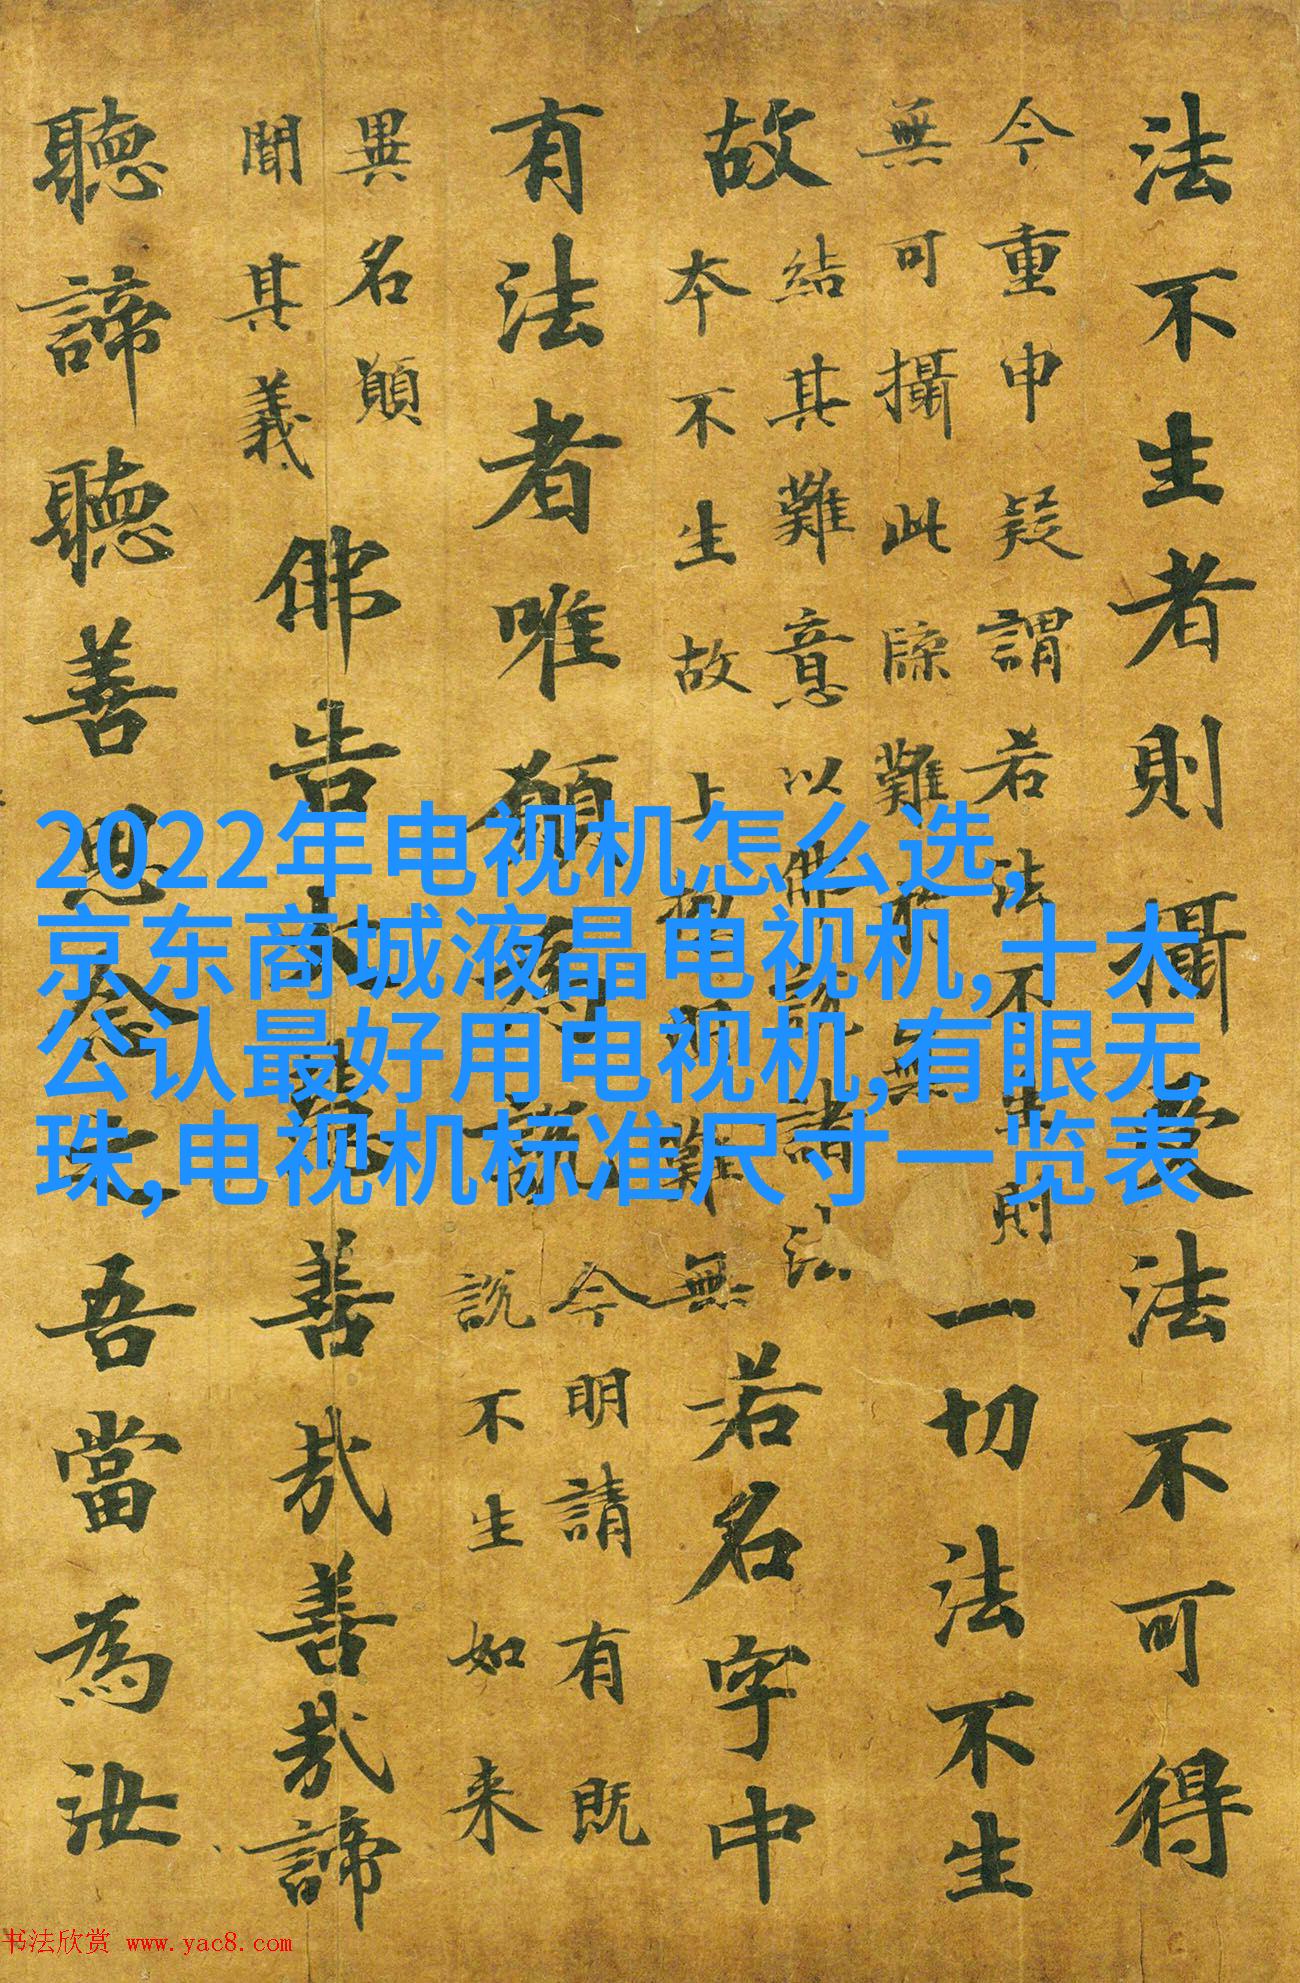 法不生者則攝受法不可得
今重申疑謂若法不生則
無可攝此牒難無
一切法不生
故
結其難意以佛説諸法
本不生故上難無
若名字中
有法者唯願為説
今明請有既
説不生如来
異名願
聞其義
佛告大慧善哉善哉諦
聽諦聽善思念之吾當為汝
2022年电视机怎么选,
京东商城液晶电视机,十大
公认最好用电视机,有眼无
珠,电视机标准尺寸一览表
书法欣赏 www.yac8.com